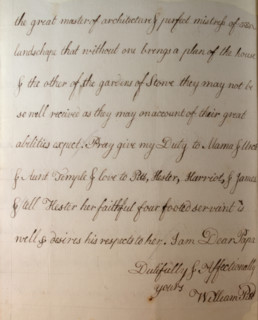 the great master of architecture & perfect mistress of
landscape that without one brings a plan of the house
& the other of the gardens of Stowe they may not be
so well received as they may on account of their great
abilities expect. Pray give my Duty to Mama & Uncle
& Aunt Temple & love to Pitt, Hester, Harriot, & James
& tell Hester her faithful four footed servant is
well & desires his respects to her. I am Dear Papa
Dutifully & Affectionally
yours
William Pitt